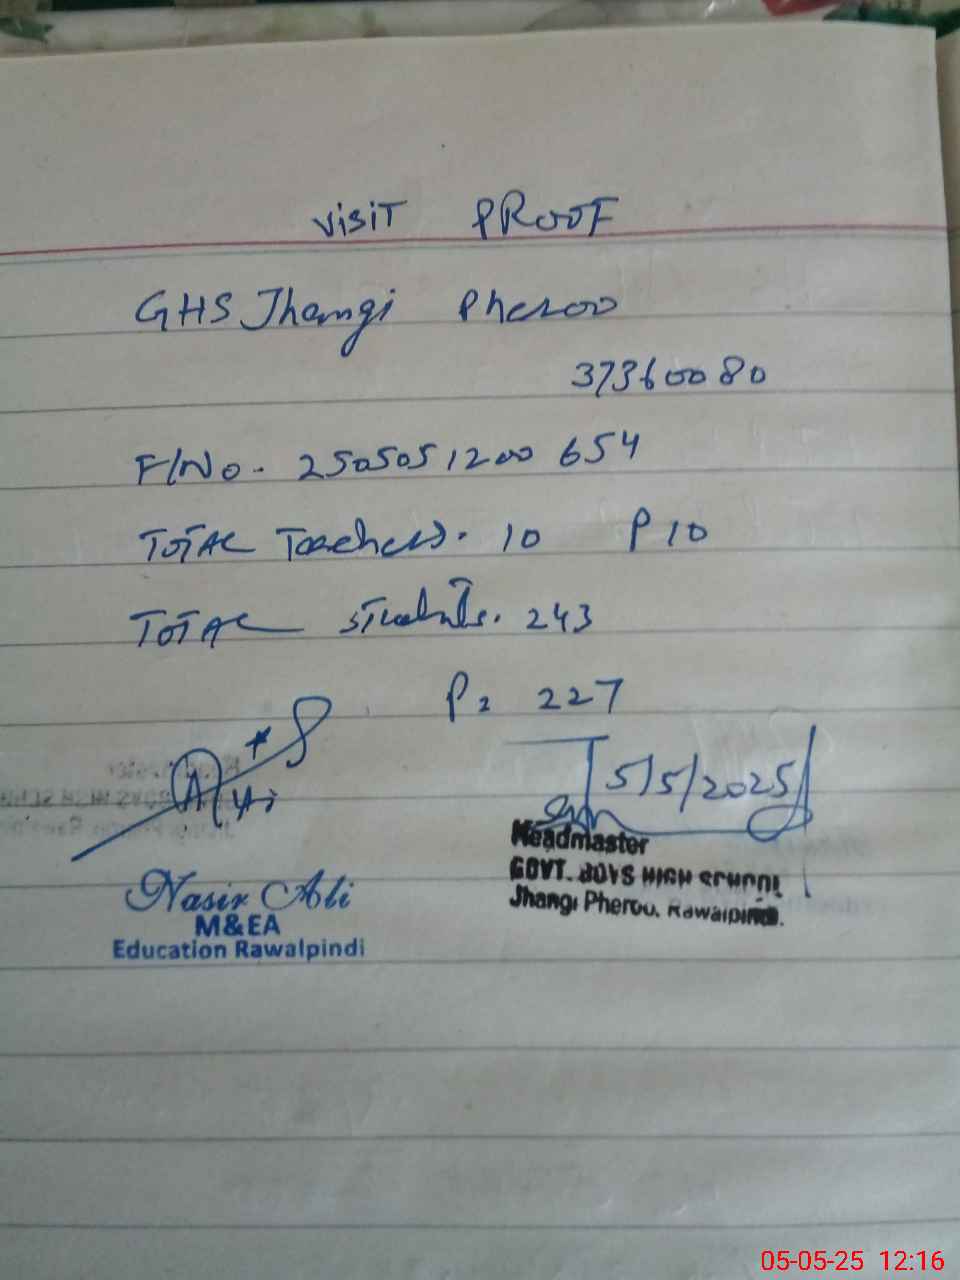 VISIT PROOF
GHS Jhangi Pheroo
37360080
F/No. 2505051200654
TOTAL Teachers. 10 P 10
TOTAL Students. 243
P= 227
5/5/2025
Headmaster
GOVT. BOYS HIGH SCHOOL
Jhangi Pheroo, Rawalpindi.
Nasir Ali
M&EA
Education Rawalpindi
05-05-25 12:16